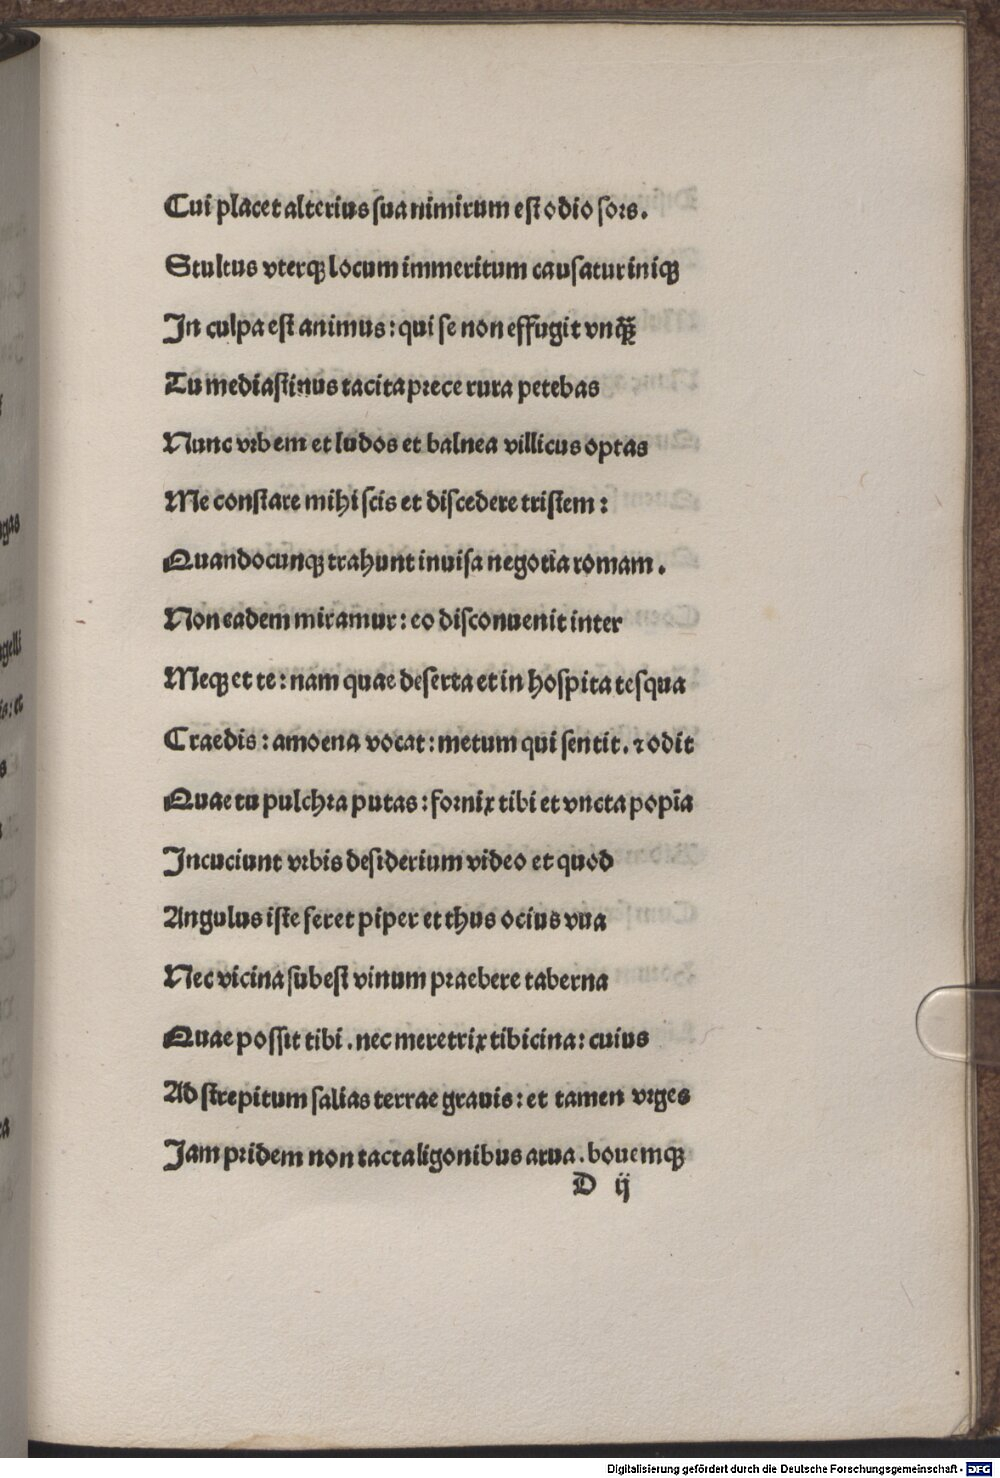 Cui placet alterius sua nimirum est odio sors.
Stultus vterqꝫ locum immeritum causatur iniqꝫ
In culpa est animus: qui se non effugit vnq̄ꝫ
Tu mediastinus tacita prece rura petebas
Nunc vrbem et ludos et balnea villicus optas
Me constare mihi scis et discedere tristem:
Quandocunqꝫ trahunt inuisa negotia romam.
Non eadem miramur: eo disconuenit inter
Meqꝫ et te: nam quae deserta et in hospita tesqua
Craedis: amoena vocat: metum qui sentit. ⁊ odit
Quae tu pulchra putas: fornix tibi et vncta popīa
Incuciunt vrbis desiderium video et quod
Angulus iste feret piper et thus ocius vua
Nec vicina subest vinum praebere taberna
Quae possit tibi. nec meretrix tibicina: cuius
Ad strepitum salias terrae grauis: et tamen vrges
Iam pridem non tacta ligonibus arua. bouemqꝫ
D ij
Digitalisierung gefördert durch die Deutsche Forschungsgemeinschaft - DFG